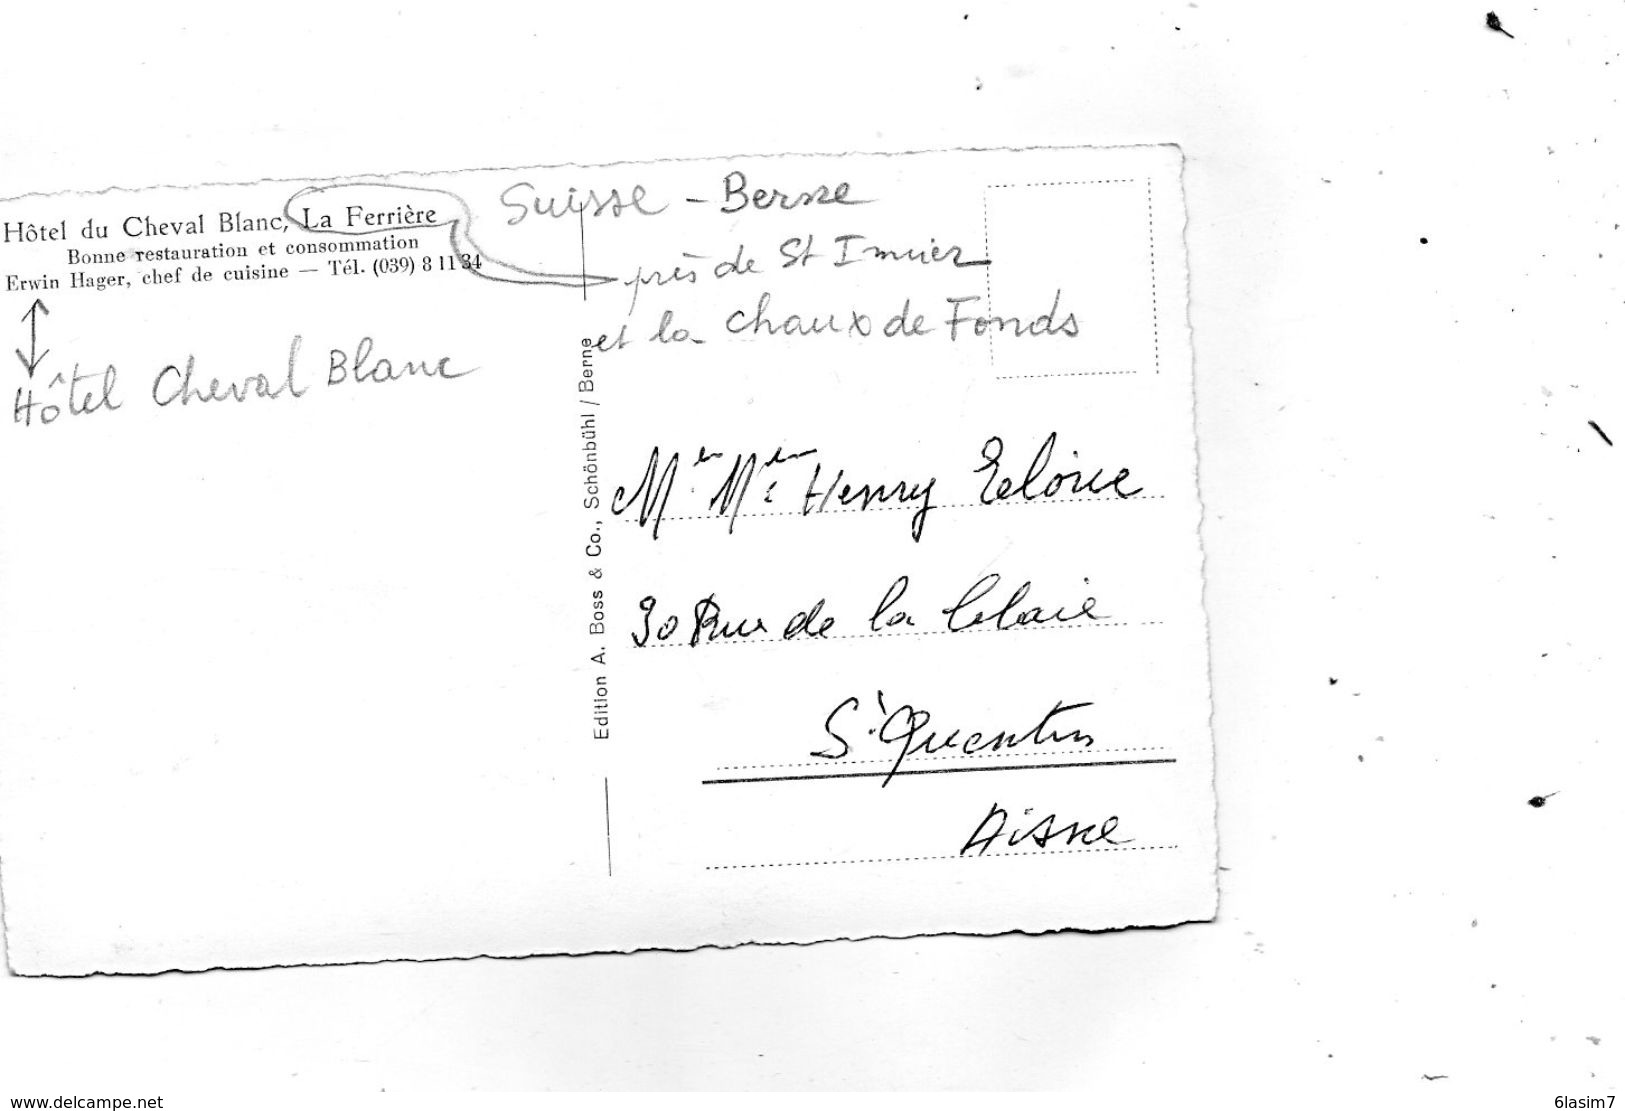 Hôtel du Cheval Blanc, La Ferrière
Bonne restauration et consommation
Erwin Hager, chef de cuisine — Tél. (039) 8 11 34
Hôtel Cheval Blanc
Suisse - Berne
près de St Imier
et la chaux de Fonds
Edition A. Boss & Co., Schönbühl / Berne
Henry
30 Rue de la
St Quentin
Aisne
www.delcampe.net
6lasim7